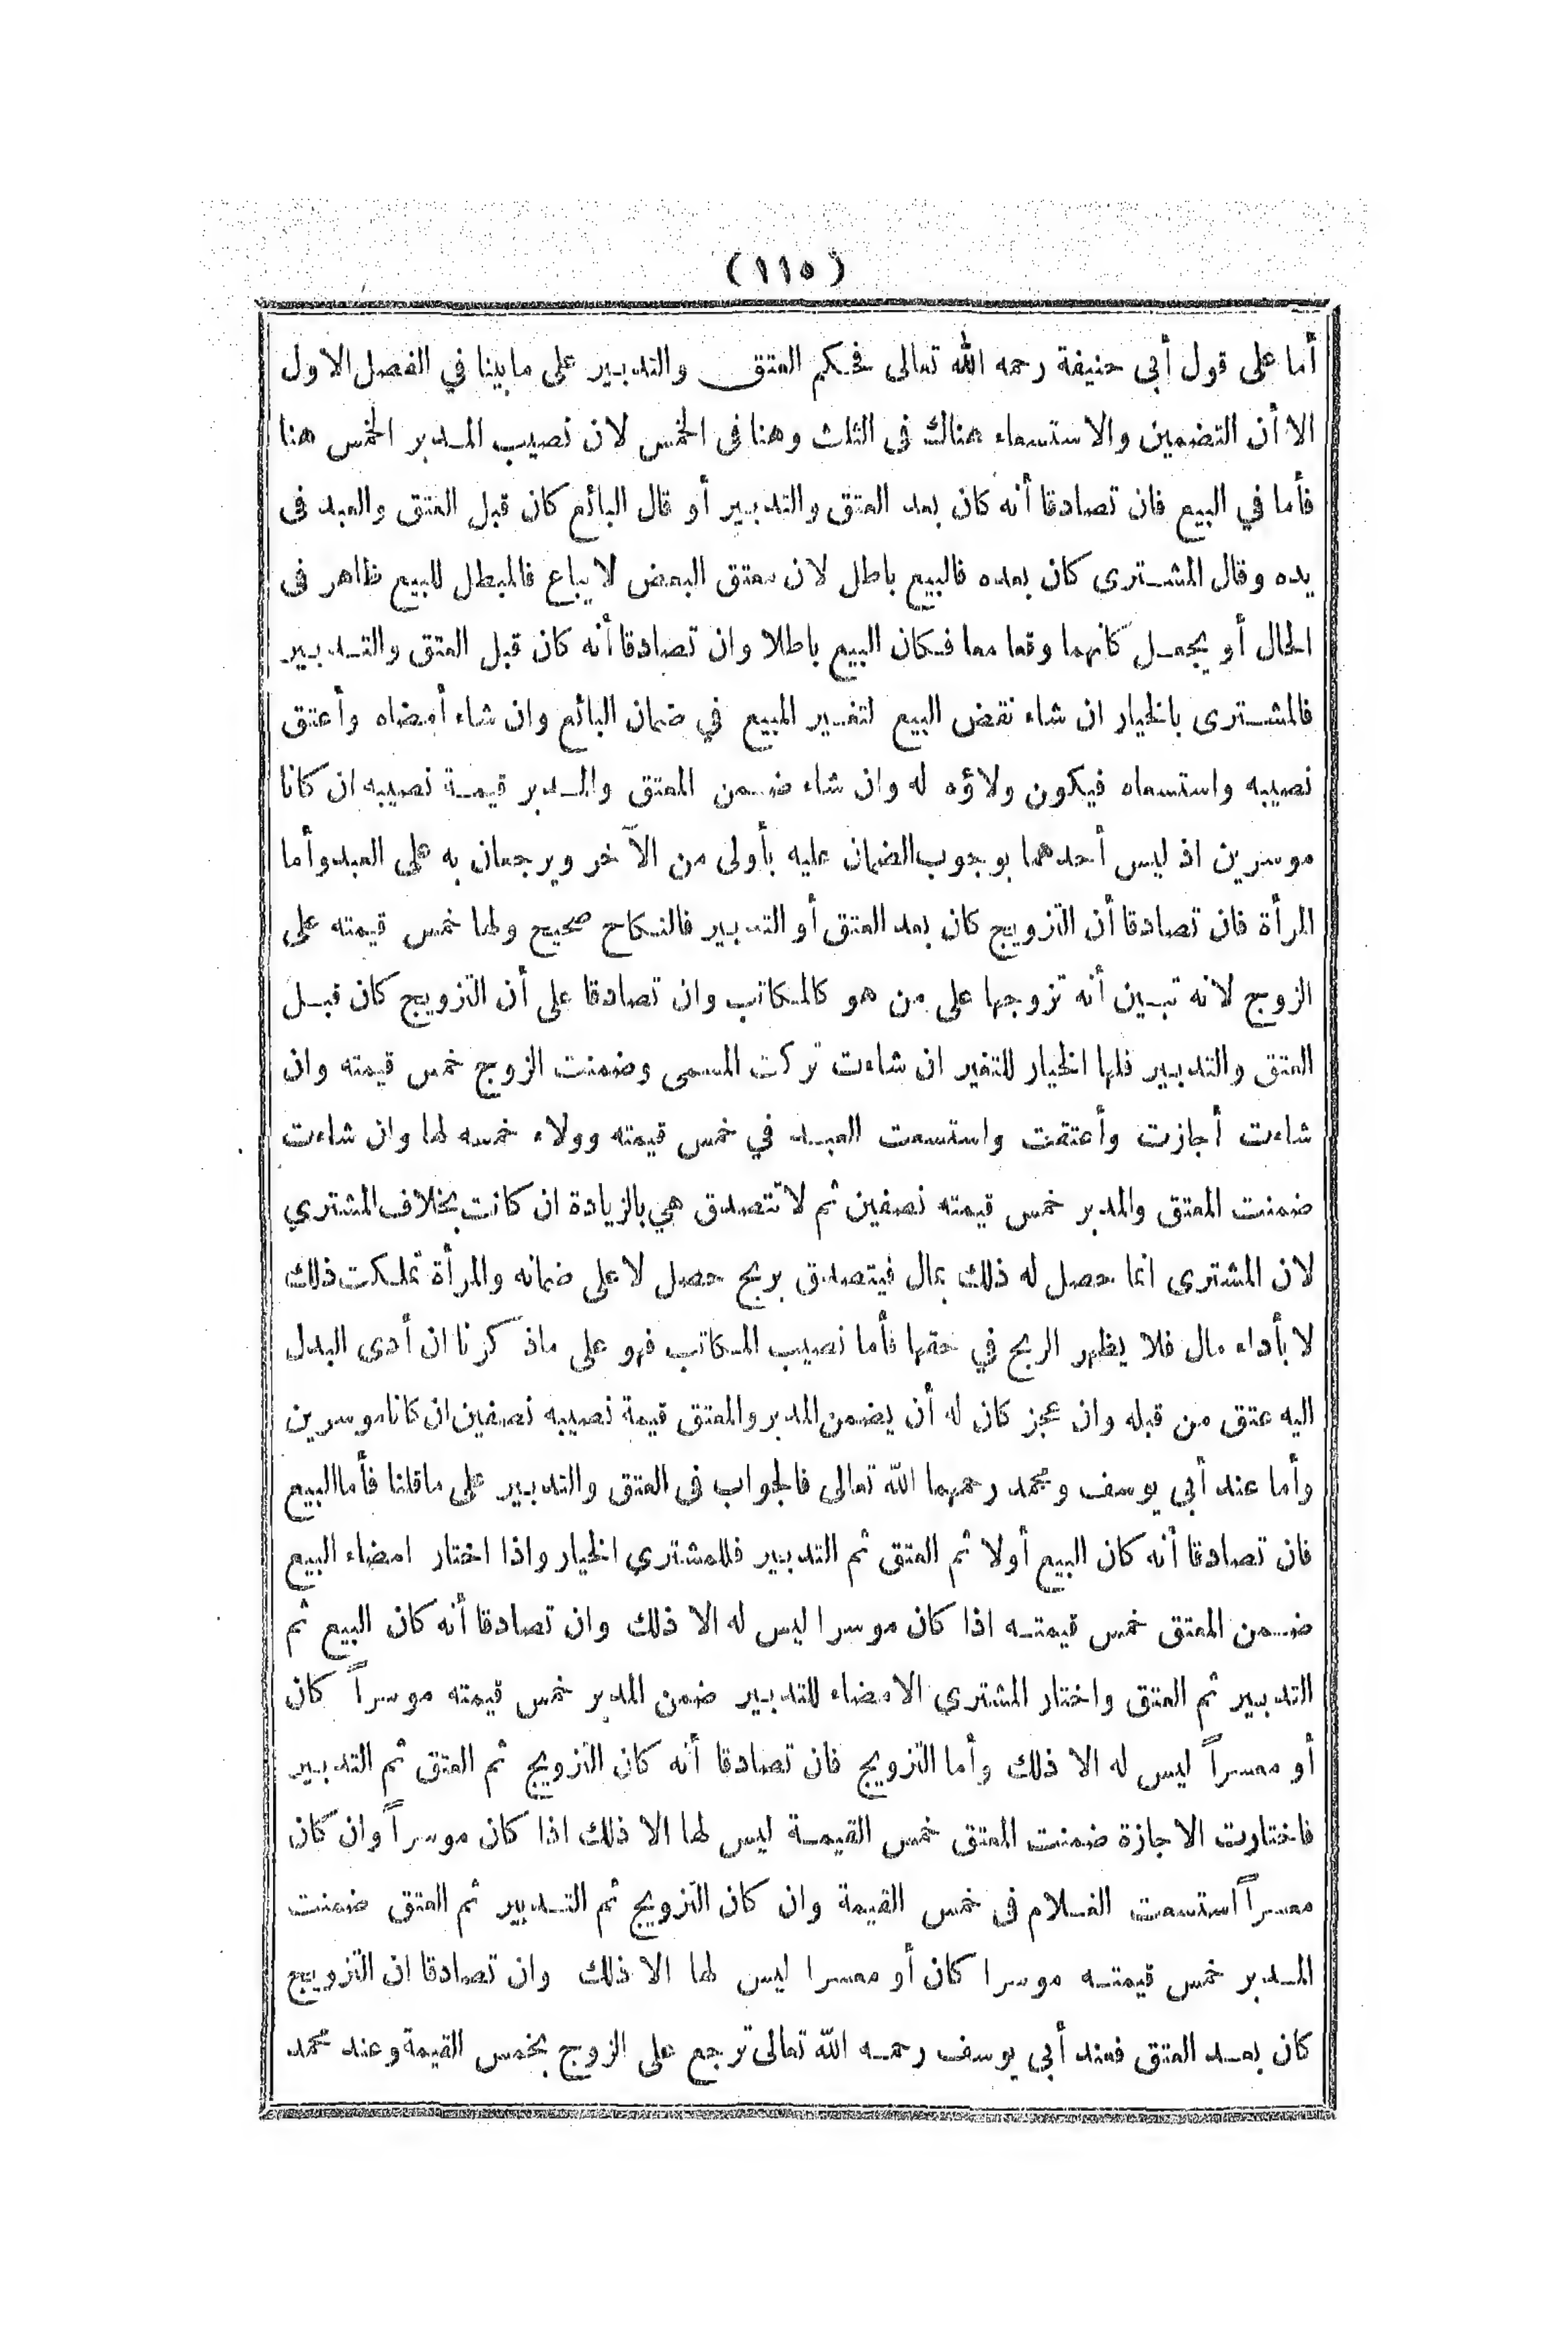 (١١٥)
أما على قول أبى حنيفة رحمه الله تعالى فحكم العتق والتدبير على ما بينا في الفصل الاول
الا أن التضمين والاستسعاء هناك فى الثلث وهنا فى الخمس لان نصيب المدبر الخمس هنا
فأما في البيع فان تصادقا أنه كان بعد العتق والتدبير أو قال البائع كان قبل العتق والعبد فى
يده وقال المشترى كان بعده فالبيع باطل لان معتق البعض لا يباع فالمبطل للبيع ظاهر فى
الحال أو يجعل كانهما وقعا معا فكان البيع باطلا وان تصادقا أنه كان قبل العتق والتدبير
فالمشترى بالخيار ان شاء نقض البيع لتغير المبيع في ضمان البائع وان شاء أمضاه وأعتق
نصيبه واستسعاه فيكون ولاؤه له وان شاء ضمن المعتق والمدبر قيمة نصيبه ان كانا
موسرين اذ ليس أحدهما بوجوب الضمان عليه بأولى من الآخر ويرجعان به على العبد وأما
المرأة فان تصادقا أن التزويج كان بعد العتق أو التدبير فالنكاح صحيح ولها خمس قيمته على
الزوج لانه تبين أنه تزوجها على من هو كالمكاتب وان تصادقا على أن التزويج كان قبل
العتق والتدبير فلها الخيار للتغير ان شاءت تركت المسمى وضمنت الزوج خمس قيمته وان
شاءت أجازت وأعتقت واستسعت العبد في خمس قيمته وولاء خمسه لها وان شاءت
ضمنت المعتق والمدبر خمس قيمته نصفين ثم لا تتصدق هي بالزيادة ان كانت بخلاف المشتري
لان المشترى انما حصل له ذلك بمال فيتصدق بربح حصل لا على ضمانه والمرأة تملكت ذلك
لا بأداء مال فلا يظهر الربح في حقها فأما نصيب المكاتب فهو على ماذ كرنا ان أدى البدل
اليه عتق من قبله وان عجز كان له أن يضمن المدبر والمعتق قيمة نصيبه نصفين ان كانا موسرين
وأما عند أبي يوسف ومحمد رحمهما الله تعالى فالجواب فى العتق والتدبير على ما قلنا فأما البيع
فان تصادقا أنه كان البيع أولا ثم العتق ثم التدبير فللمشتري الخيار واذا اختار امضاء البيع
ضمن المعتق خمس قيمته اذا كان موسرا ليس له الا ذلك وان تصادقا أنه كان البيع ثم
التدبير ثم العتق واختار المشتري الامضاء للتدبير ضمن المدبر خمس قيمته موسراً كان
أو معسراً ليس له الا ذلك وأما التزويج فان تصادقا أنه كان التزويج ثم العتق ثم التدبير
فاختارت الاجازة ضمنت المعتق خمس القيمة ليس لها الا ذلك اذا كان موسراً وان كان
معسراً استسعت الغلام فى خمس القيمة وان كان التزويج ثم التدبير ثم العتق ضمنت
المدبر خمس قيمته موسرا كان أو معسرا ليس لها الا ذلك وان تصادقا ان التزويج
كان بعد العتق فعند أبي يوسف رحمه الله تعالى ترجع على الزوج بخمس القيمة وعند محمد